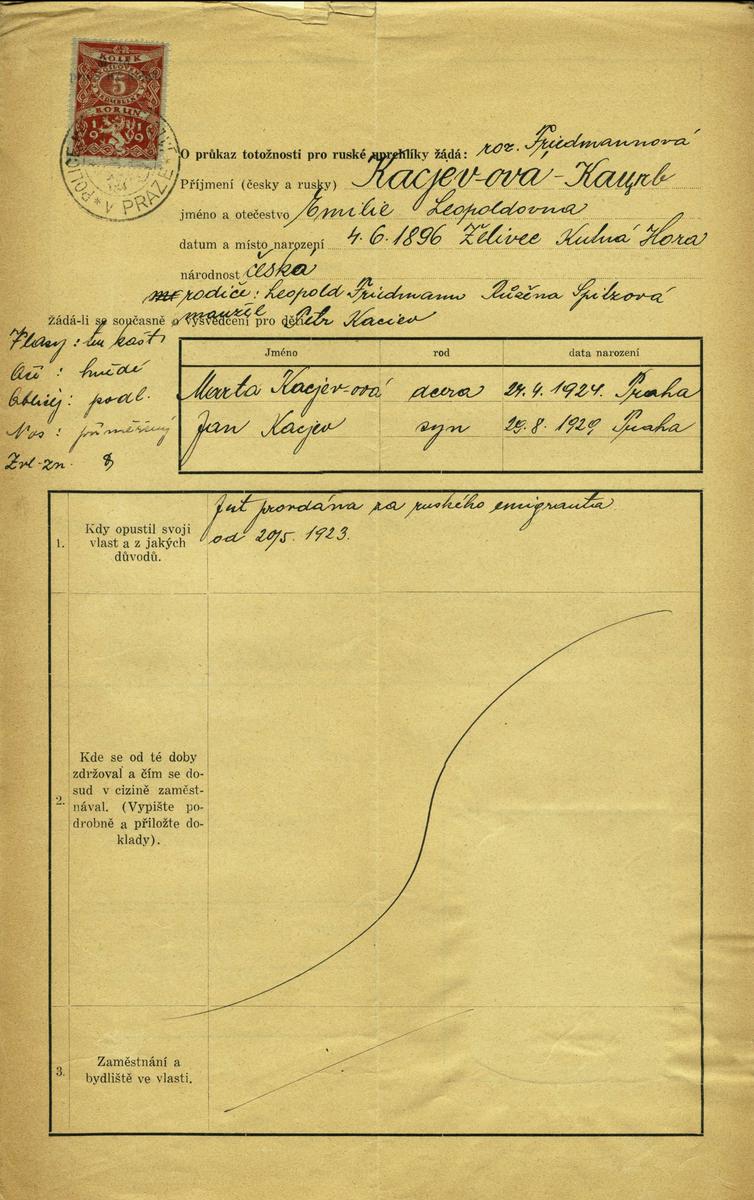 KOLEK
5
KORUN
1919
POLICE
V PRAZE
O průkaz totožnosti pro ruské uprchlíky žádá: roz. Friedmannová
Příjmení (česky a rusky) Kacjev-ová -
jméno a otečestvo Emilie Leopoldovna
datum a místo narození 4. 6. 1896 Želivec Kutná Hora
národnost česká
rodiče: Leopold Friedmann Růžena Spitzová
manžel Petr Kacjev
Žádá-li se současně o vysvědčení pro děti:
Vlasy: kašt
Oči: hnědé
Obličej: podl.
Nos: přiměřený
Zvl. zn.
Jméno rod data narození
Marta Kacjev-ová dcera 24. 4. 1924. Praha
Jan Kacjev syn 29. 8. 1929 Praha
1. Kdy opustil svoji
vlast a z jakých
důvodů.
provdána za ruského emigranta
od 20/5. 1923.
2. Kde se od té doby
zdržoval a čím se do-
sud v cizině zaměst-
nával. (Vypište po-
drobně a přiložte do-
klady).
3. Zaměstnání a
bydliště ve vlasti.